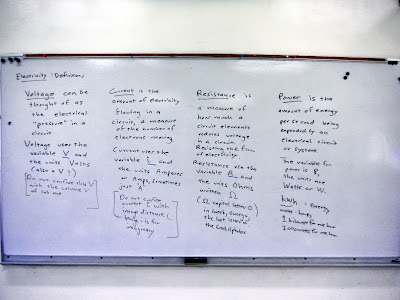 Electricity: Definitions
Voltage can be
thought of as
the electrical
"pressure" in a
circuit
Voltage uses the
variable V and
the units Volts
(also V!)
Do not confuse this V
with the volume V
of lab one
Current is the
amount of electricity
flowing in a
circuit, a measure
of the number of
electrons moving
Current uses the
variable i and
the units Amperes
or Amps, sometimes
just A
Do not confuse
current i with
image distance i,
imaginary
Resistance is
a measure of
how much a
circuit elements
reduces voltage
in a circuit.
Resisting the flow
of electricity.
Resistance use the
variable R and
the units Ohms
written Ω
(Ω capital letter O)
in Greek, Omega,
the last letter of
the Greek alphabet
Power is the
amount of energy
per second being
expended by an
electrical circuit
or system
The variable for
power is P,
the units are
Watts or W.
kWh = Energy